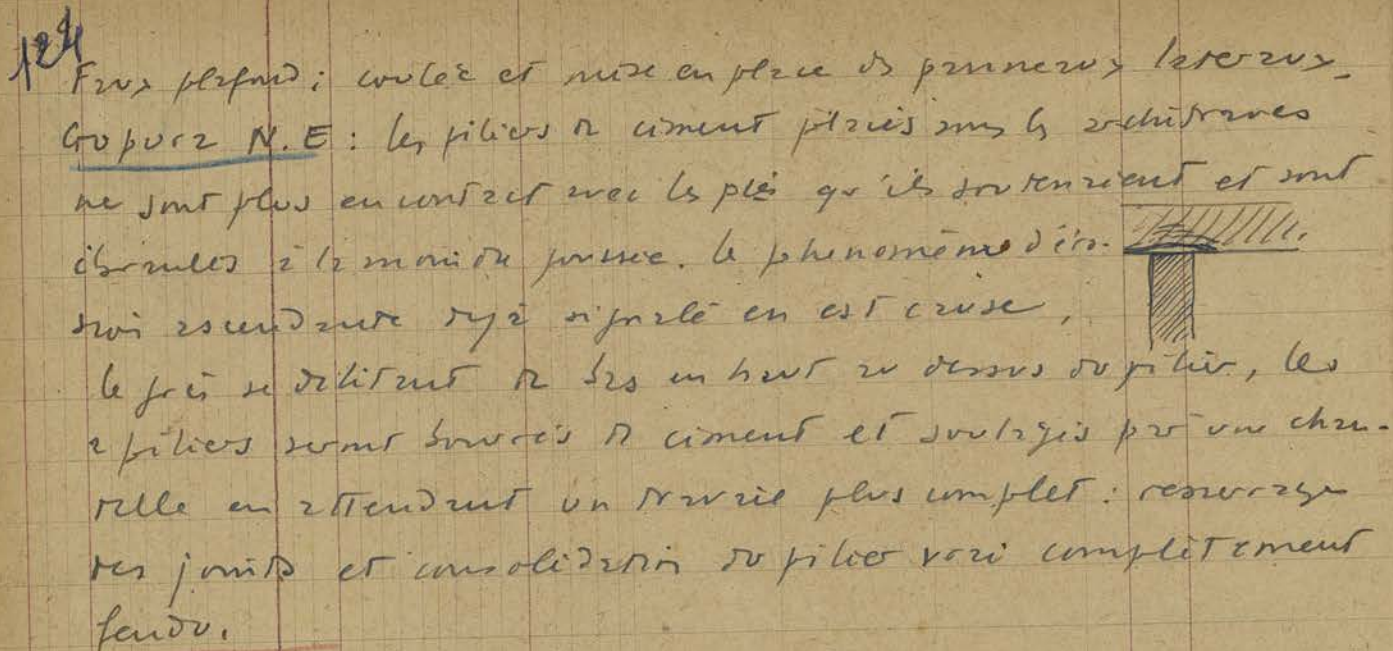 124
Faux plafond : coulée et mise en place des panneaux lateraux.
Gopura N.E : les piliers de ciment placés sous les architraves
ne sont plus en contact avec les qu'ils soutenaient et sont
ébranlés à la moindre poussée. le phénomène d'éro-
sion ascendante déjà signalé en est cause,
le grès se délitant de bas en haut au dessus du pilier, les
2 piliers seront bourrés de ciment et soulagés par une chan-
delle en attendant un travail plus complet :
des joints et consolidation du pilier voisi complètement
fendu.